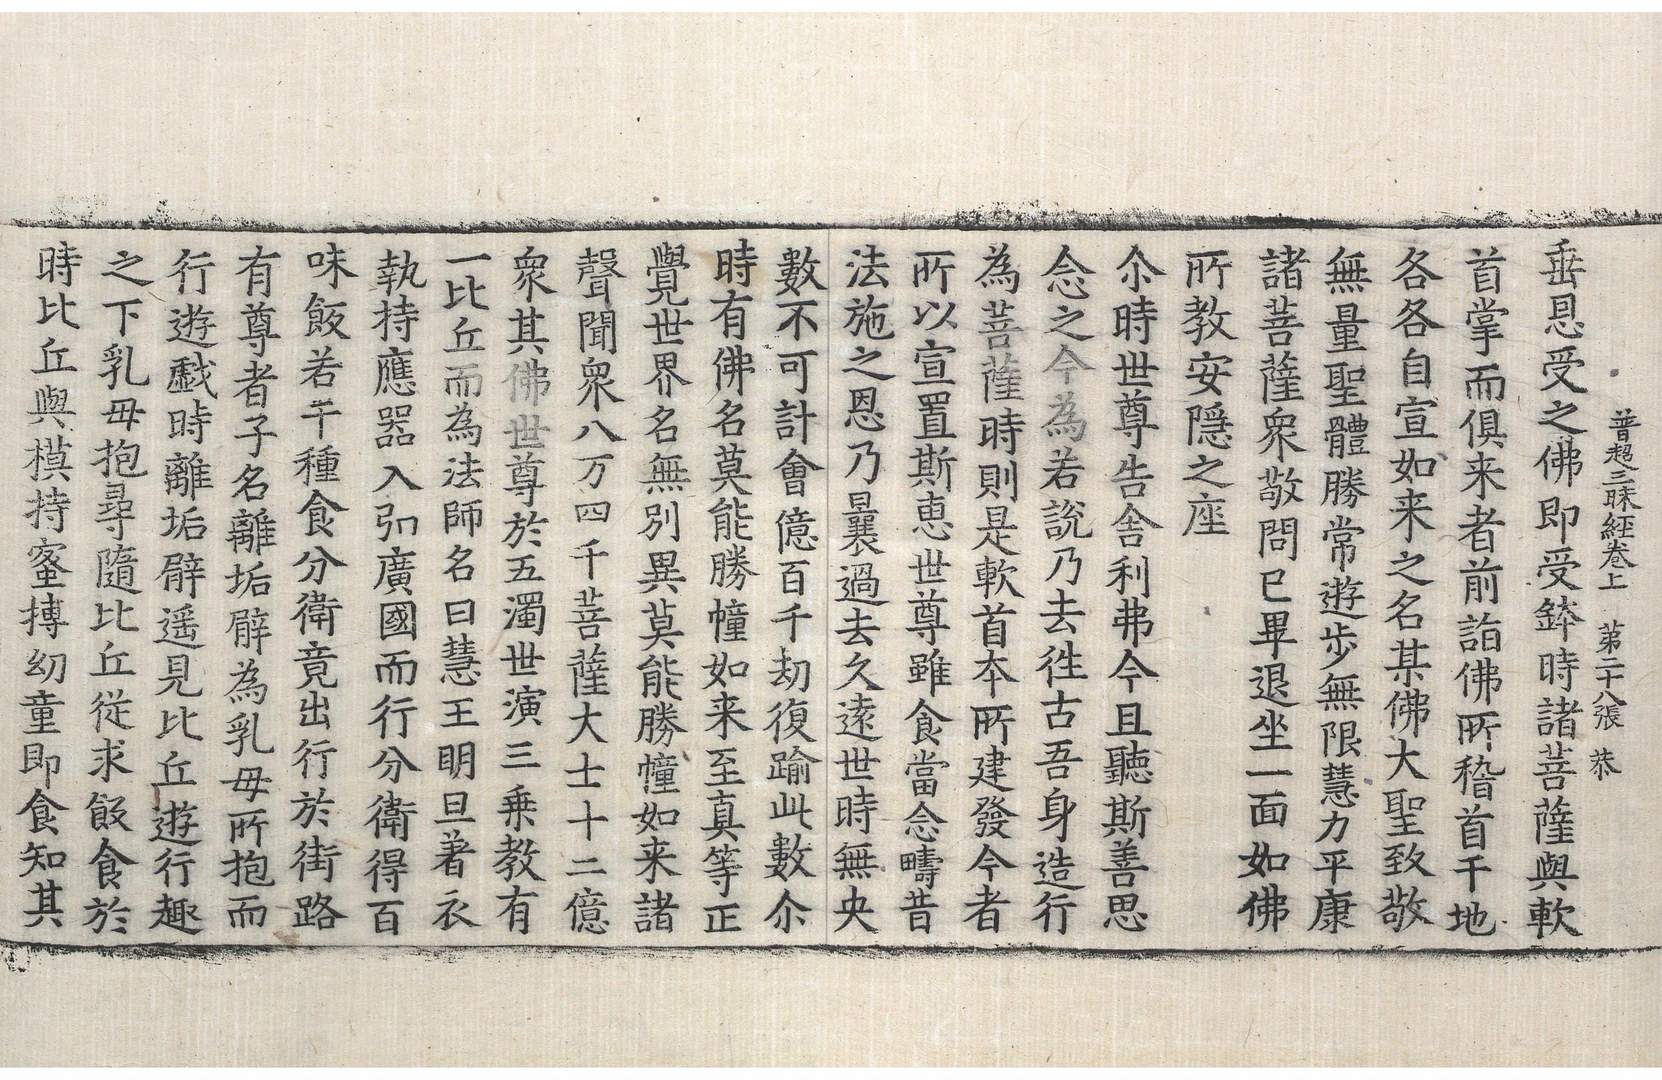 普超三昧經卷上 第二十八張 恭
垂恩受之佛即受鉢時諸菩薩與軟
首掌而俱来者前詣佛所稽首于地
各各自宣如来之名某佛大聖致敬
無量聖體勝常遊步無限慧力平康
諸菩薩衆敬問已畢退坐一面如佛
所教安隱之座
尒時世尊告舍利弗今且聽斯善思
念之今為若說乃去徃古吾身造行
為菩薩時則是軟首本所建發今者
所以宣置斯恵世尊雖食當念疇昔
法施之恩乃曩過去久遠世時無央
數不可計會億百千劫復踰此數尒
時有佛名莫能勝幢如来至真等正
覺世界名無別異莫能勝幢如来諸
聲聞衆八万四千菩薩大士十二億
衆其佛世尊於五濁世演三乗教有
一比丘而為法師名曰慧王明旦著衣
執持應器入弘廣國而行分衛得百
味飯若干種食分衛竟出行於街路
有尊者子名離垢臂為乳母所抱而
行遊戲時離垢臂遥見比丘遊行趣
之下乳母抱尋隨比丘從求飯食於
時比丘與模持蜜摶幼童即食知其